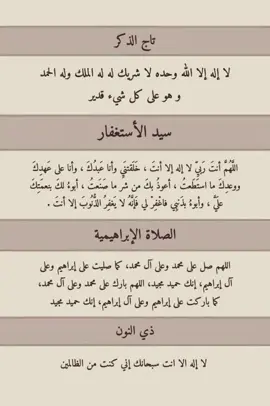 تاج الذكر
لا إله إلا الله وحده لا شريك له له الملك وله الحمد
و هو على كل شيء قدير
سيد الأستغفار
اللَّهُمَّ أنتَ رَبِّي لا إله إلا أنتَ ، خَلَقتَني وأنا عَبدُكَ ، وأنا على عَهدِكَ
ووعدِكَ ما استَطَعتُ ، أعوذُ بكَ من شرِ ما صَنَعتُ ، أبوءُ لكَ بنعمَتِكَ
عَليَّ ، وأبوءُ بذَنبي فاغْفِرْ لي فإنَّهُ لا يَغفِرُ الذُّنوبَ إلا أنتَ .
الصلاة الإبراهيمية
اللهم صل على محمد وعلى آل محمد، كما صليت على إبراهيم وعلى
آل إبراهيم، إنك حميد مجيد، اللهم بارك على محمد وعلى آل محمد،
كما باركت على إبراهيم وعلى آل إبراهيم، إنك حميد مجيد
ذي النون
لا إله الا انت سبحانك إني كنت من الظالمين